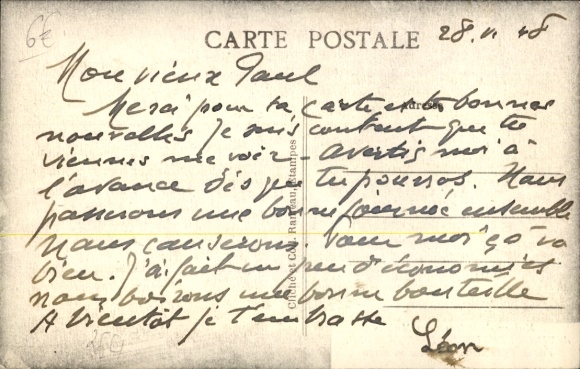 6€
CARTE POSTALE
28.VI 48
Mon vieux Paul
Merci pour ta carte et tes bonnes
nouvelles je suis content que tu
viennes me voir - avertis moi à
l'avance dès que tu pourras. Nous
passerons une bonne journée ensemble
Nous causerons. Pour moi ça va
bien. J'ai fait un peu d'économies
nous boirons une bonne bouteille
A bientôt je t'embrasse
Léon
Cliché et Coll. Rameau, Etampes